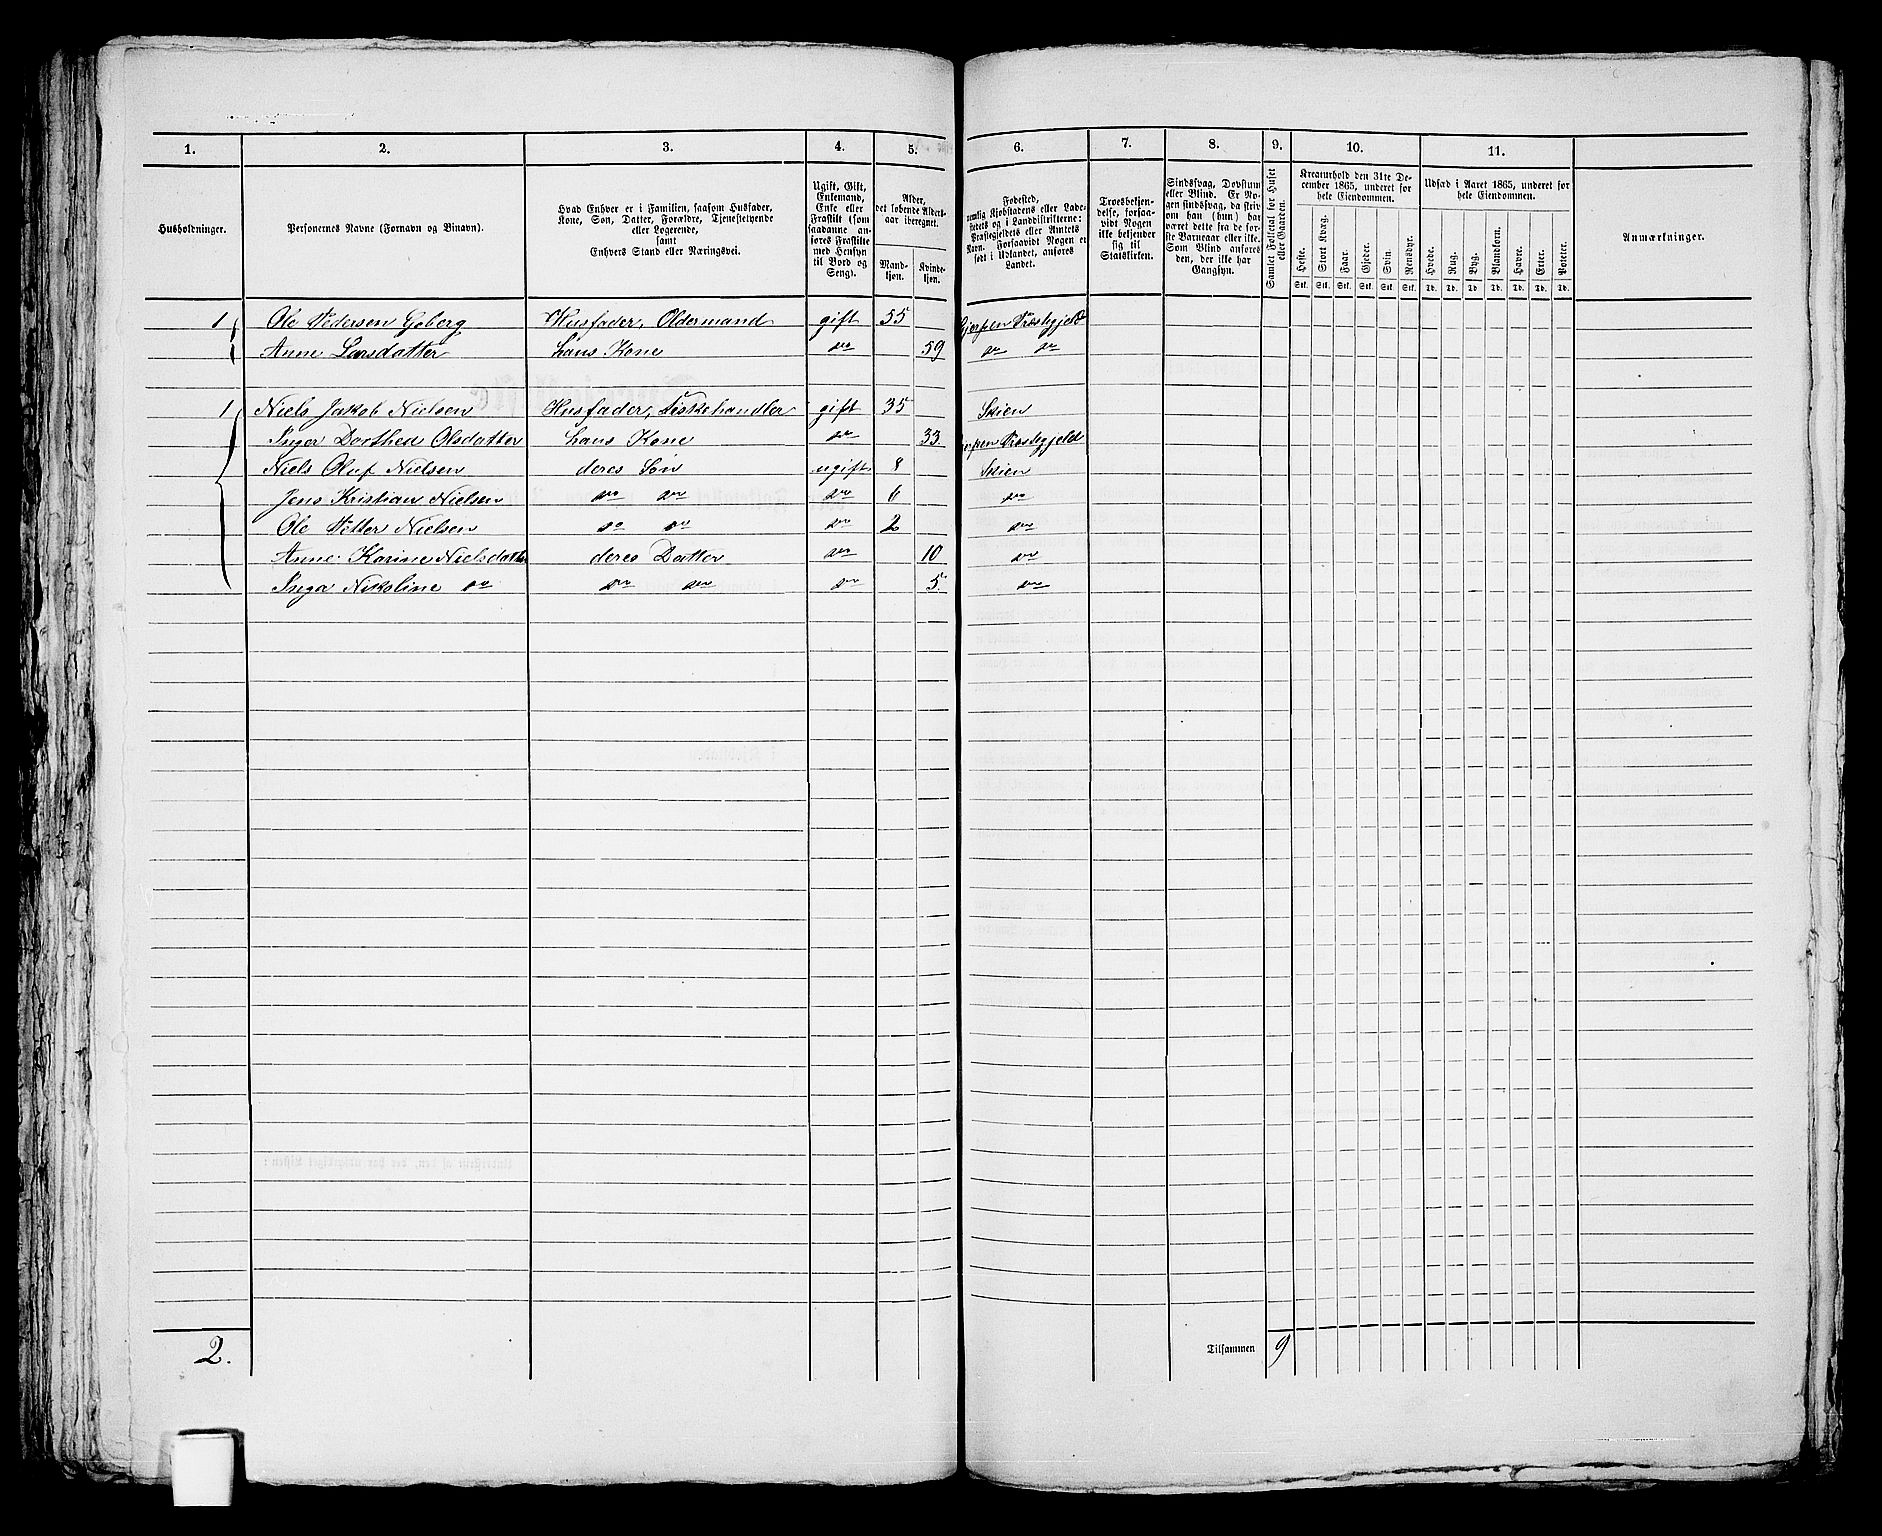 1. 2. 3. 4. 5. 6. 7. 8. 9. 10. 11.
Husholdninger.
Personernes Navne (Fornavn og Binavn).
Hvad Enhver er i Familien, saasom Husfader,
Kone, Søn, Datter, Forældre, Tjenestetyende
eller Logerende,
samt
Enhvers Stand eller Næringsvei.
Ugift, Gift,
Enkemand,
Enke eller
Fraskilt (som
saadanne an-
føres Fraskilte
med Hensyn
til Bord og
Seng).
Alder,
det løbende Alders-
aar iberegnet.
Mand-
kjøn.
Kvinde-
kjøn.
Fødested,
nemlig Kjøbstadens eller Lade-
stedets og i Landdistrikterne:
Præstegjeldets eller Amtets
Navn. Forsaavidt Nogen er
født i Udlandet, anføres
Landet.
Troesbekjen-
delse, forsaa-
vidt Nogen
ikke bekjender
sig til
Statskirken.
Sindssvag, Døvstum
eller Blind. Er No-
gen sindssvag, da skriv
om han (hun) har
været dette fra de før-
ste Barneaar eller ikke.
Som Blind anføres
den, der ikke har
Gangsyn.
Samlet Folketal for Huset
eller Gaarden.
Kreaturhold den 31te De-
cember 1865, underet for
hele Eiendommen.
Heste. Stort Kvæg. Faar. Gjeder. Svin. Rensdyr.
Stk. Stk. Stk. Stk. Stk. Stk.
Udsæd i Aaret 1865, underet for
hele Eiendommen.
Hvede. Rug. Byg. Blandkorn. Havre. Erter. Poteter.
Td. Td. Td. Td. Td. Td. Td.
Anmærkninger.
1 Ole Pedersen Goberg Husfader, Oldermand gift 55 Gjerpen Præstegjeld
Anne Larsdatter hans Kone do 59 do do
1 Niels Jakob Nielsen Husfader, Fiskehandler gift 35 Skien
Inger Dorthea Olsdatter hans Kone do 33 Gjerpen Præstegjeld
Niels Oluf Nielsen deres Søn ugift 8 Skien
Jens Kristian Nielsen do do do 6 do
Ole Petter Nielsen do do do 2 do
Anne Karine Nielsdatter deres Datter do 10 do
Inga Nikoline do do do do 5 do
2. Tilsammen 9